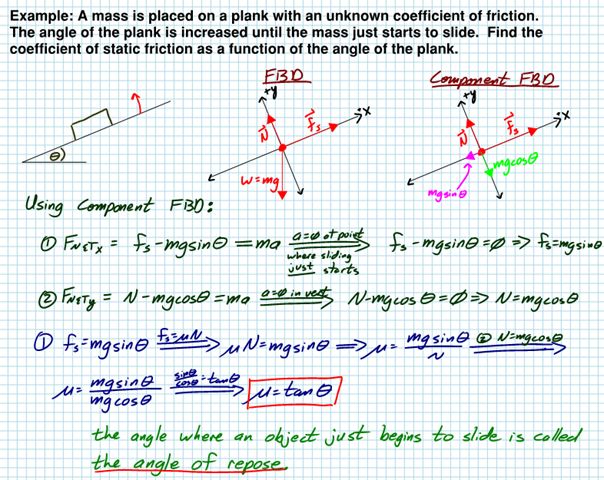 Example: A mass is placed on a plank with an unknown coefficient of friction.
The angle of the plank is increased until the mass just starts to slide. Find the
coefficient of static friction as a function of the angle of the plank.
FBD
Component FBD
θ
+y
+x
N⃗
f⃗s
w=mg
+y
+x
N⃗
f⃗s
mgcosθ
mgsinθ
Using Component FBD:
① FNETx = fs-mgsinθ = ma a=∅ at point where sliding just starts ⟹ fs-mgsinθ=∅ ⟹ fs=mgsinθ
② FNETy = N-mgcosθ=ma a=∅ in vert ⟹ N-mgcosθ=∅ ⟹ N=mgcosθ
① fs=mgsinθ fs=μN ⟹ μN=mgsinθ ⟹ μ= mgsinθ/N ② N=mgcosθ ⟹
μ= mgsinθ/mgcosθ sinθ/cosθ=tanθ ⟹ μ=tanθ
the angle where an object just begins to slide is called
the angle of repose.